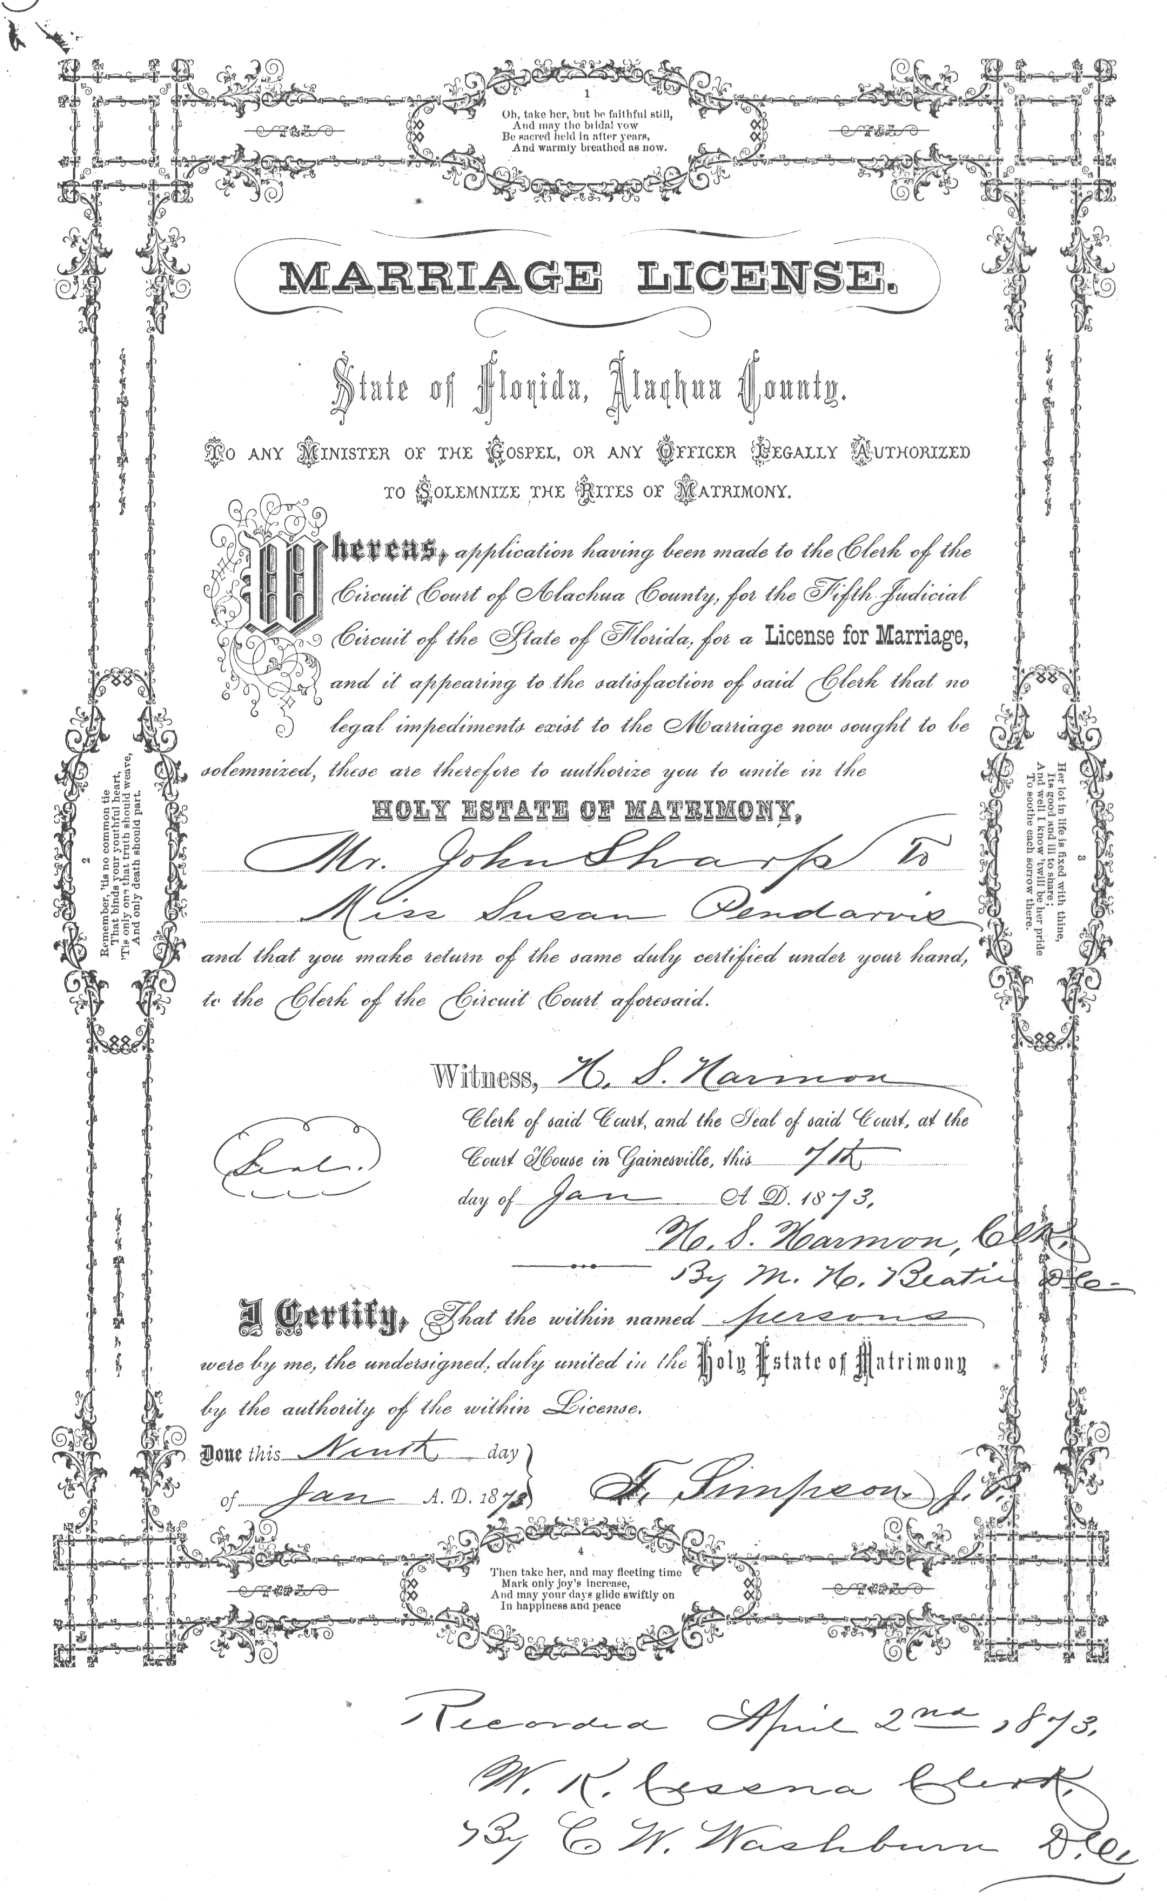 1
Oh, take her, but be faithful still,
And may the bridal vow
Be sacred held in after years,
And warmly breathed as now.
MARRIAGE LICENSE.
State of Florida, Alachua County.
TO ANY MINISTER OF THE GOSPEL, OR ANY OFFICER LEGALLY AUTHORIZED
TO SOLEMNIZE THE RITES OF MATRIMONY.
Whereas, application having been made to the Clerk of the
Circuit Court of Alachua County, for the Fifth Judicial
Circuit of the State of Florida, for a License for Marriage,
and it appearing to the satisfaction of said Clerk that no
legal impediments exist to the Marriage now sought to be
solemnized, these are therefore to authorize you to unite in the
HOLY ESTATE OF MATRIMONY,
Mr. John Sharp To
Miss Susan Pendarvis
and that you make return of the same duly certified under your hand,
to the Clerk of the Circuit Court aforesaid.
2
Remember, 'tis no common tie
That binds your youthful heart,
'Tis only one that truth should weave,
And only death should part.
3
Her lot in life is fixed with thine,
Its good and ill to share;
And well I know 'twill be her pride
To soothe each sorrow there.
Witness, H. S. Harmon
Clerk of said Court, and the Seal of said Court, at the
Seal.
Court House in Gainesville, this 7th
day of Jan A D. 1873.
H. S. Harmon, Clk.
By M. H. Beatie D.C.
I Certify, That the within named persons
were by me, the undersigned, duly united in the Holy Estate of Matrimony
by the authority of the within License.
Done this Ninth day
of Jan A.D. 1873
F. Simpson J.P.
4
Then take her, and may fleeting time
Mark only joy's increase,
And may your days glide swiftly on
In happiness and peace
Recorded April 2nd 1873.
W. K. Cessna Clerk.
By C. W. Washburn D.C.